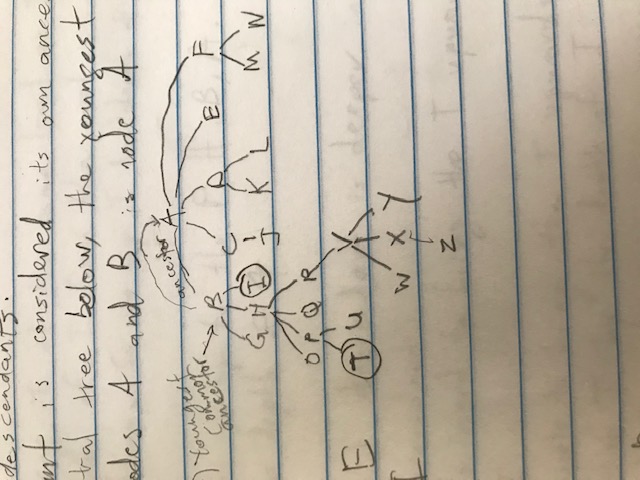 descendants.
ant is considered its own ance
tral tree below, the youngest
odes A and B is node A
ancestor A
Youngest common ancestor
B C D E F
G H I J K L M N
O P Q R
T U V
W X Y
Z
E
I